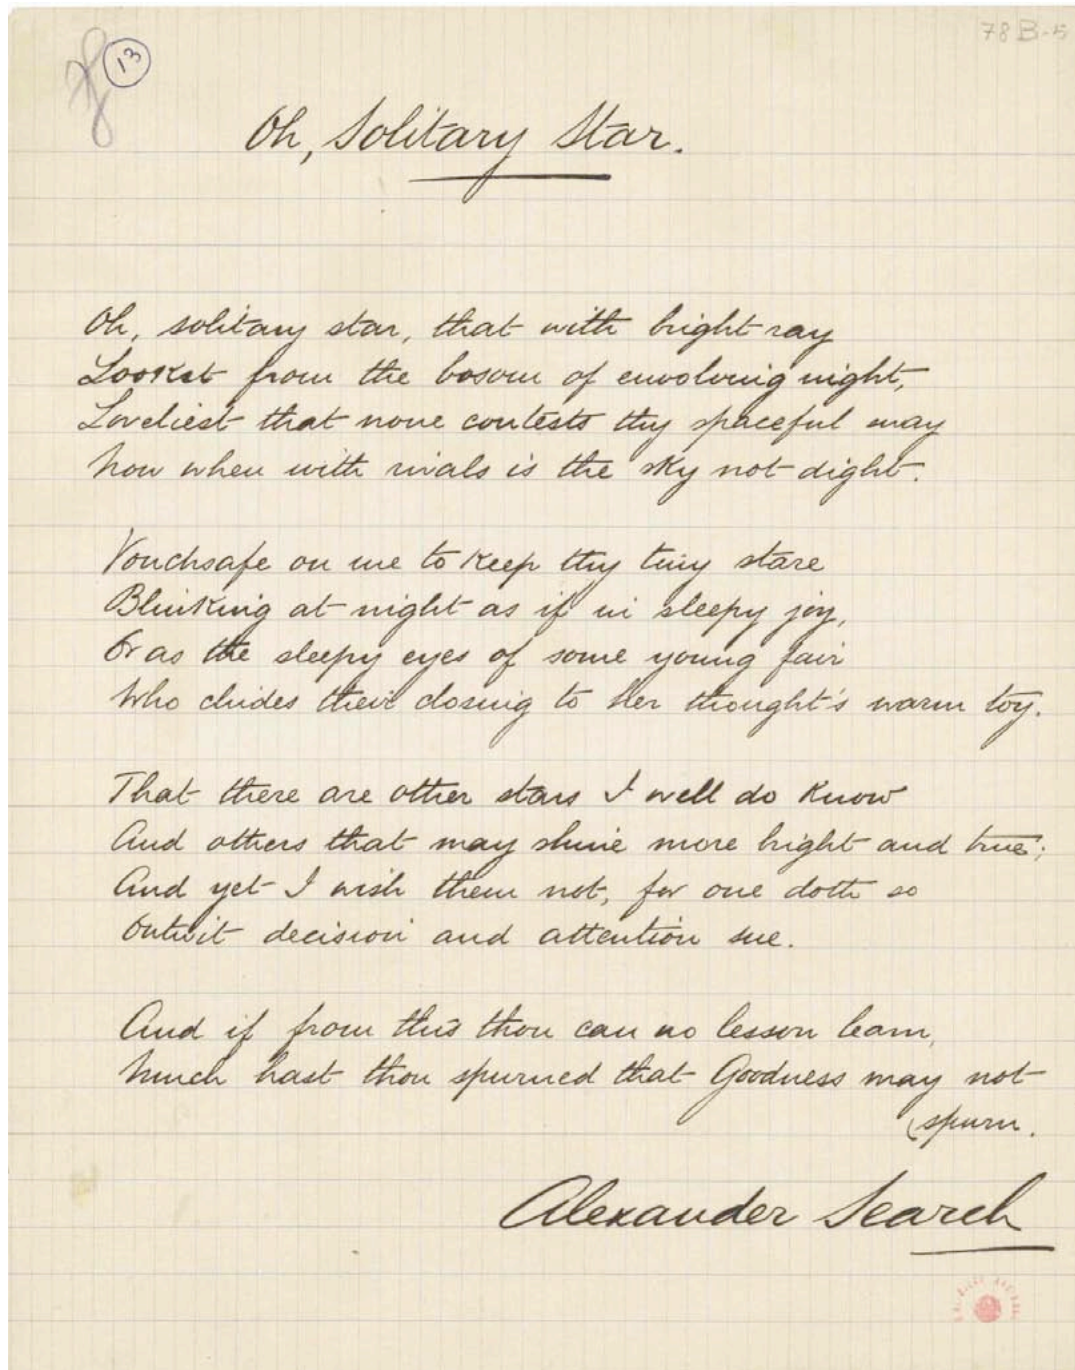 78 B-5
13
Oh, Solitary Star.
Oh, solitary star, that with bright ray
Lookest from the bosom of envolving night,
Loveliest that none contests thy spaceful way
Now when with rivals is the sky not dight.
Vouchsafe on me to keep thy tiny stare
Blinking at night as if in sleepy joy,
Or as the sleepy eyes of some young fair
Who chides their closing to her thought's warm toy.
That there are other stars I well do know
And others that may shine more bright and true;
And yet I wish them not, for one doth so
Outwit decision and attention sue.
And if from this thou can no lesson learn,
Much hast thou spurned that Goodness may not
(spurn.
Alexander Search